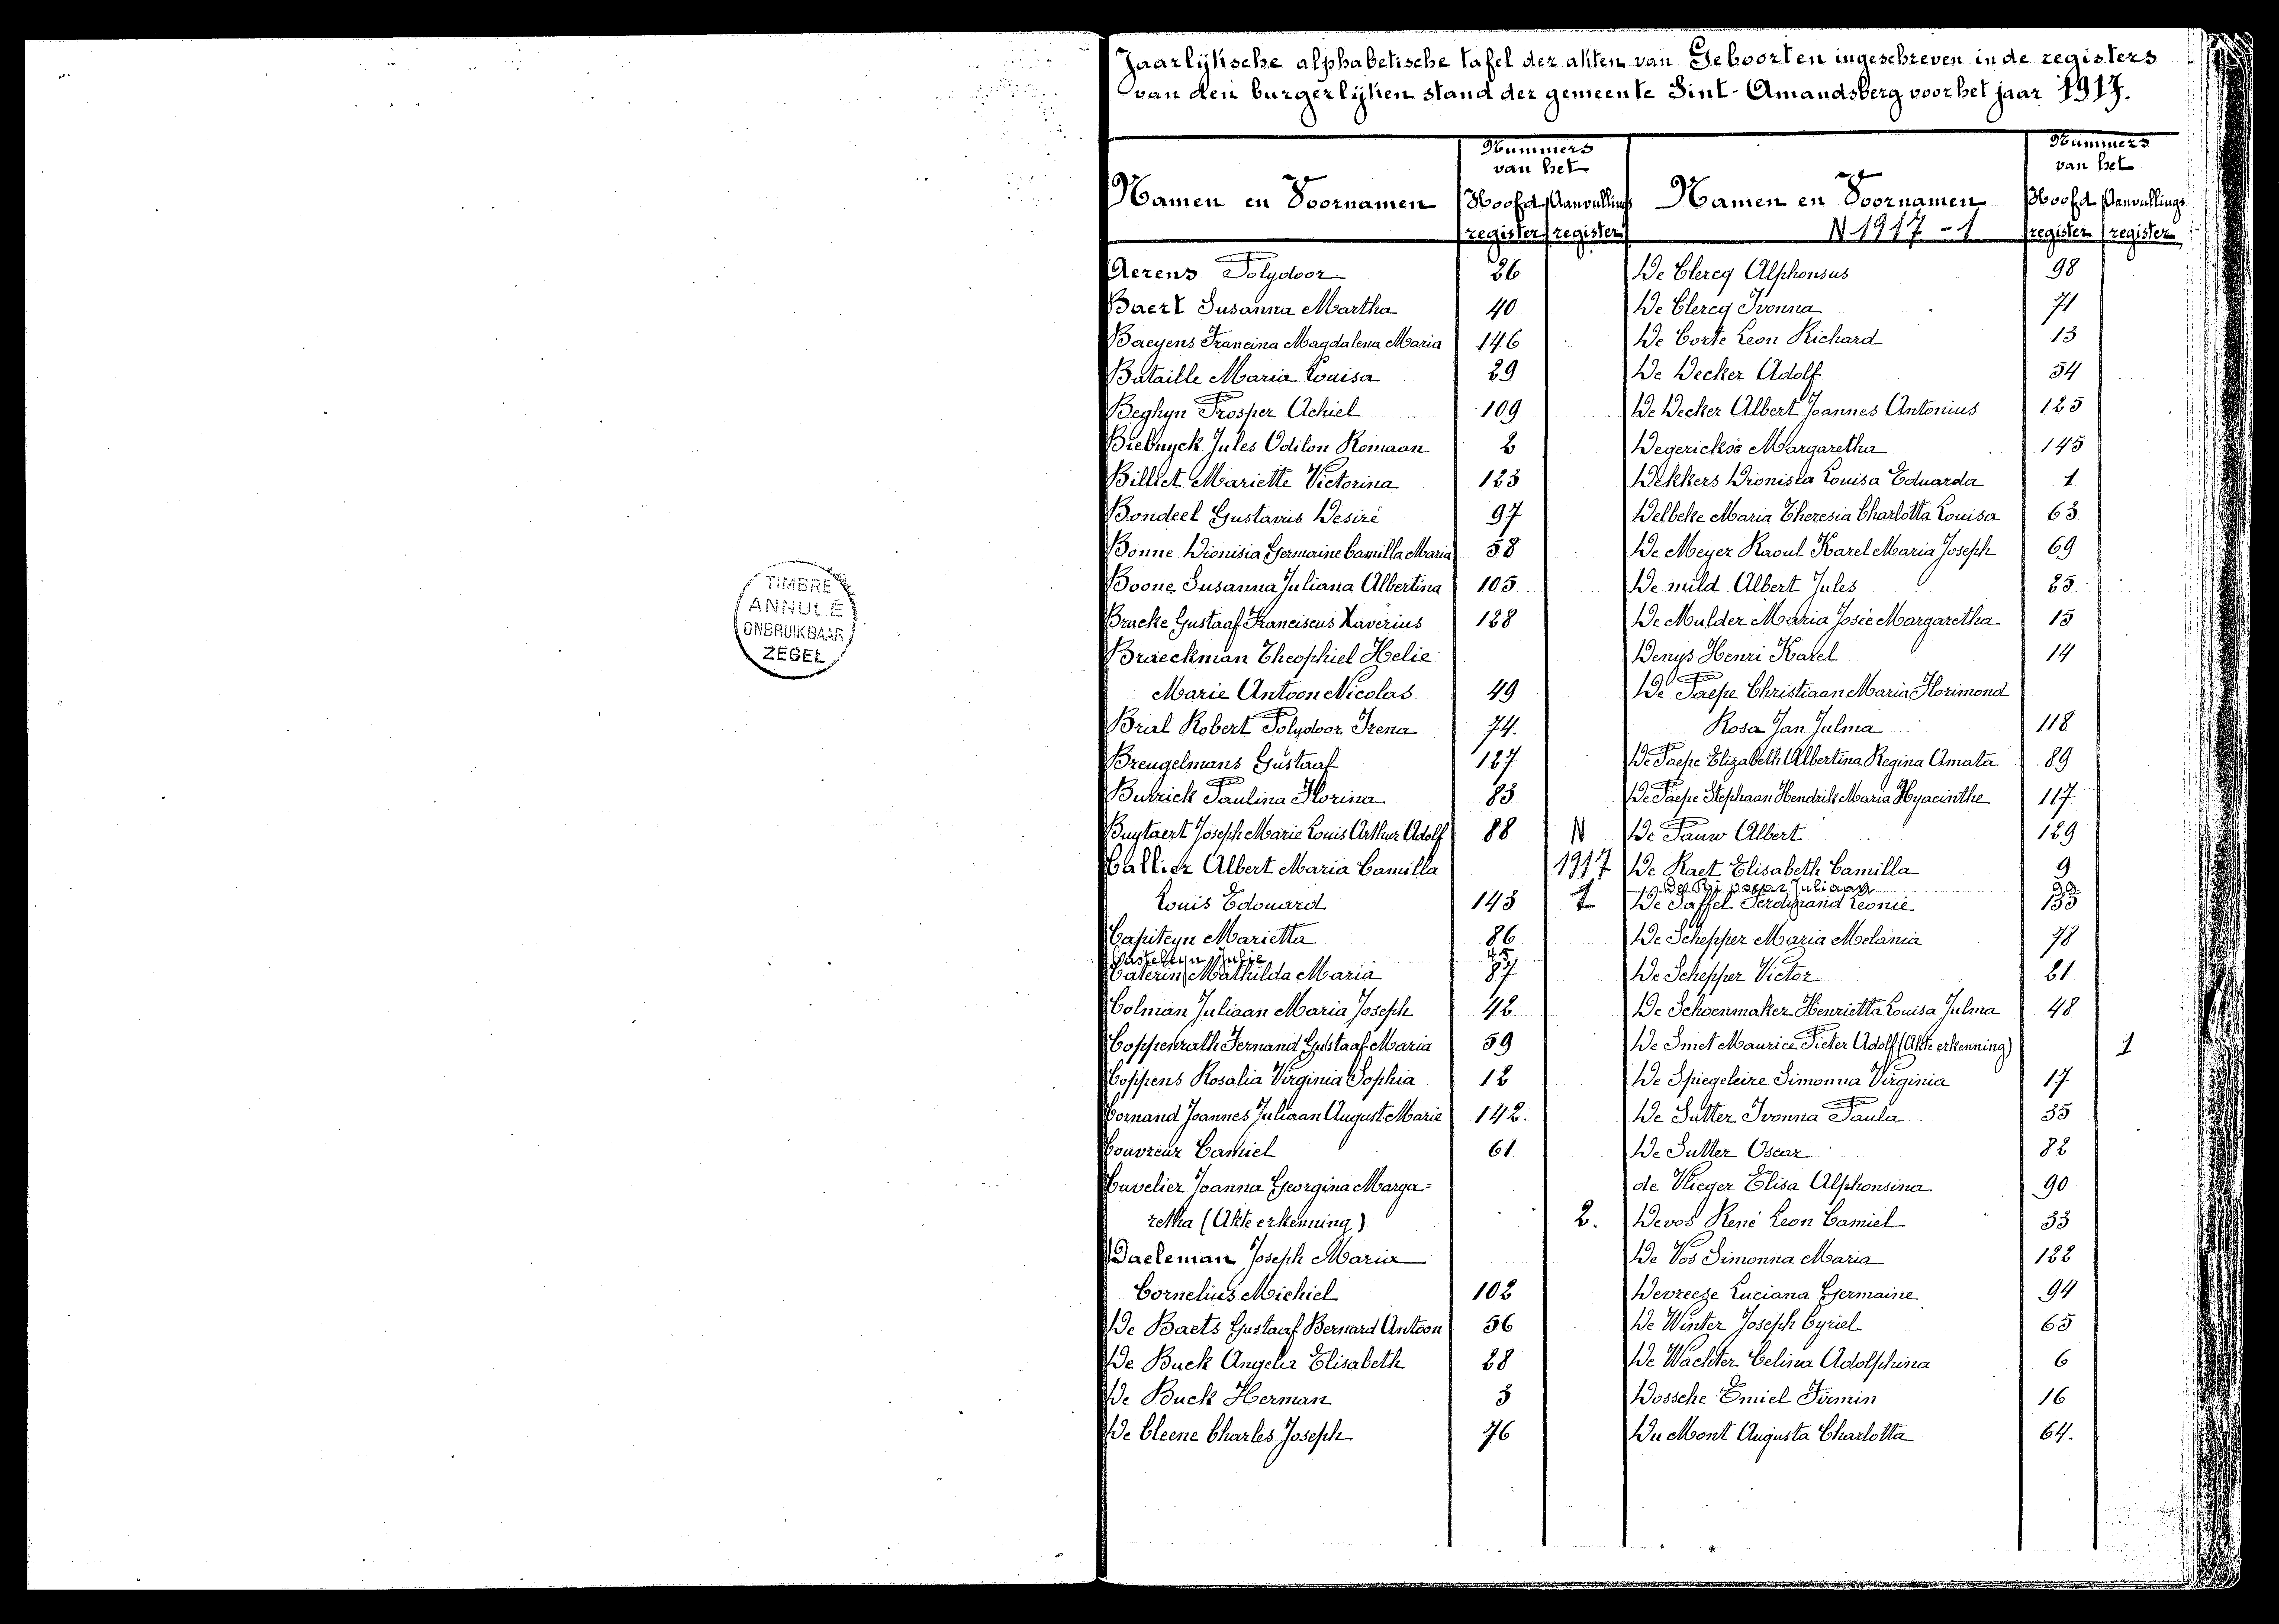 TIMBRE
ANNULÉ
ONBRUIKBAAR
ZEGEL
Jaarlijksche alphabetische tafel der akten van Geboorten ingeschreven in de registers
van den burgerlijken stand der gemeente Sint-Amandsberg voor het jaar 1917.
Namen en Voornamen
Nummers
van het
Hoofd Aanvullings
register register
Namen en Voornamen
N 1917 - 1
Nummers
van het
Hoofd Aanvullings
register register
Aerens Polydoor 26
Baert Susanna Martha 40
Baeyens Francina Magdalena Maria 146
Bataille Maria Louisa 29
Beghyn Prosper Achiel 109
Biebuyck Jules Odilon Romaan 2
Billiet Mariette Victorina 123
Bondeel Gustavus Desiré 97
Bonne Dionisia Germaine Camilla Maria 58
Boone Susanna Juliana Albertina 105
Bracke Gustaaf Franciscus Xaverius 128
Braeckman Theophiel Helie
Marie Antoon Nicolas 49
Brial Robert Polydoor Irena 74.
Breugelmans Gustaaf 127
Butrick Paulina Florina 83
Buytaert Joseph Marie Louis Arthur Adolf 88
Callier Albert Maria Camilla
Louis Edouard 143
Capiteyn Marietta 86
Casteleyn Julie 45
Caterin Mathilda Maria 87
Colman Juliaan Maria Joseph 42
Coppenrath Fernand Gustaaf Maria 59
Coppens Rosalia Virginia Sophia 12
Cornand Joannes Juliaan August Marie 142.
Couvreur Camiel 61
Cuvelier Joanna Georgina Marga=
retha (Akte erkenning) 2.
Daeleman Joseph Maria
Cornelius Michiel 102
De Baets Gustaaf Bernard Antoon 56
De Buck Angela Elisabeth 28
De Buck Herman 3
De Cleene Charles Joseph 76
N
1917
1
De Clercq Alphonsus 98
De Clercq Ivonna 71
De Corte Leon Richard 13
De Decker Adolf 54
De Decker Albert Joannes Antonius 125
Degerickse Margaretha 145
Dekkers Dionisia Louisa Eduarda 1
Delbeke Maria Theresia Charlotta Louisa 63
De Meyer Raoul Karel Maria Joseph 69
De mild Albert Jules 25
De Mulder Maria Josée Margaretha 15
Denys Henri Karel 14
De Paepe Christiaan Maria Florimond
Rosa Jan Julma 118
De Paepe Elizabeth Albertina Regina Amata 89
De Paepe Stephaan Hendrik Maria Hyacinthe 117
De Pauw Albert 129
De Raet Elisabeth Camilla 9
Oscar Juliaan 99
De Saffel Ferdinand Leonie 133
De Schepper Maria Melania 78
De Schepper Victor 21
De Schoenmaker Henrietta Louisa Julma 48
De Smet Maurice Pieter Adolf (Akte erkenning) 1
De Spiegeleire Simonna Virginia 17
De Sutter Ivonna Paula 35
De Sutter Oscar 82
de Vlieger Elisa Alphonsina 90
Devos René Leon Camiel 33
De Vos Simonna Maria 122
Devreese Luciana Germaine 94
De Winter Joseph Cyriel 65
De Wachter Celina Adolphina 6
Dossche Emiel Firmin 16
Du Mont Augusta Charlotta 64.